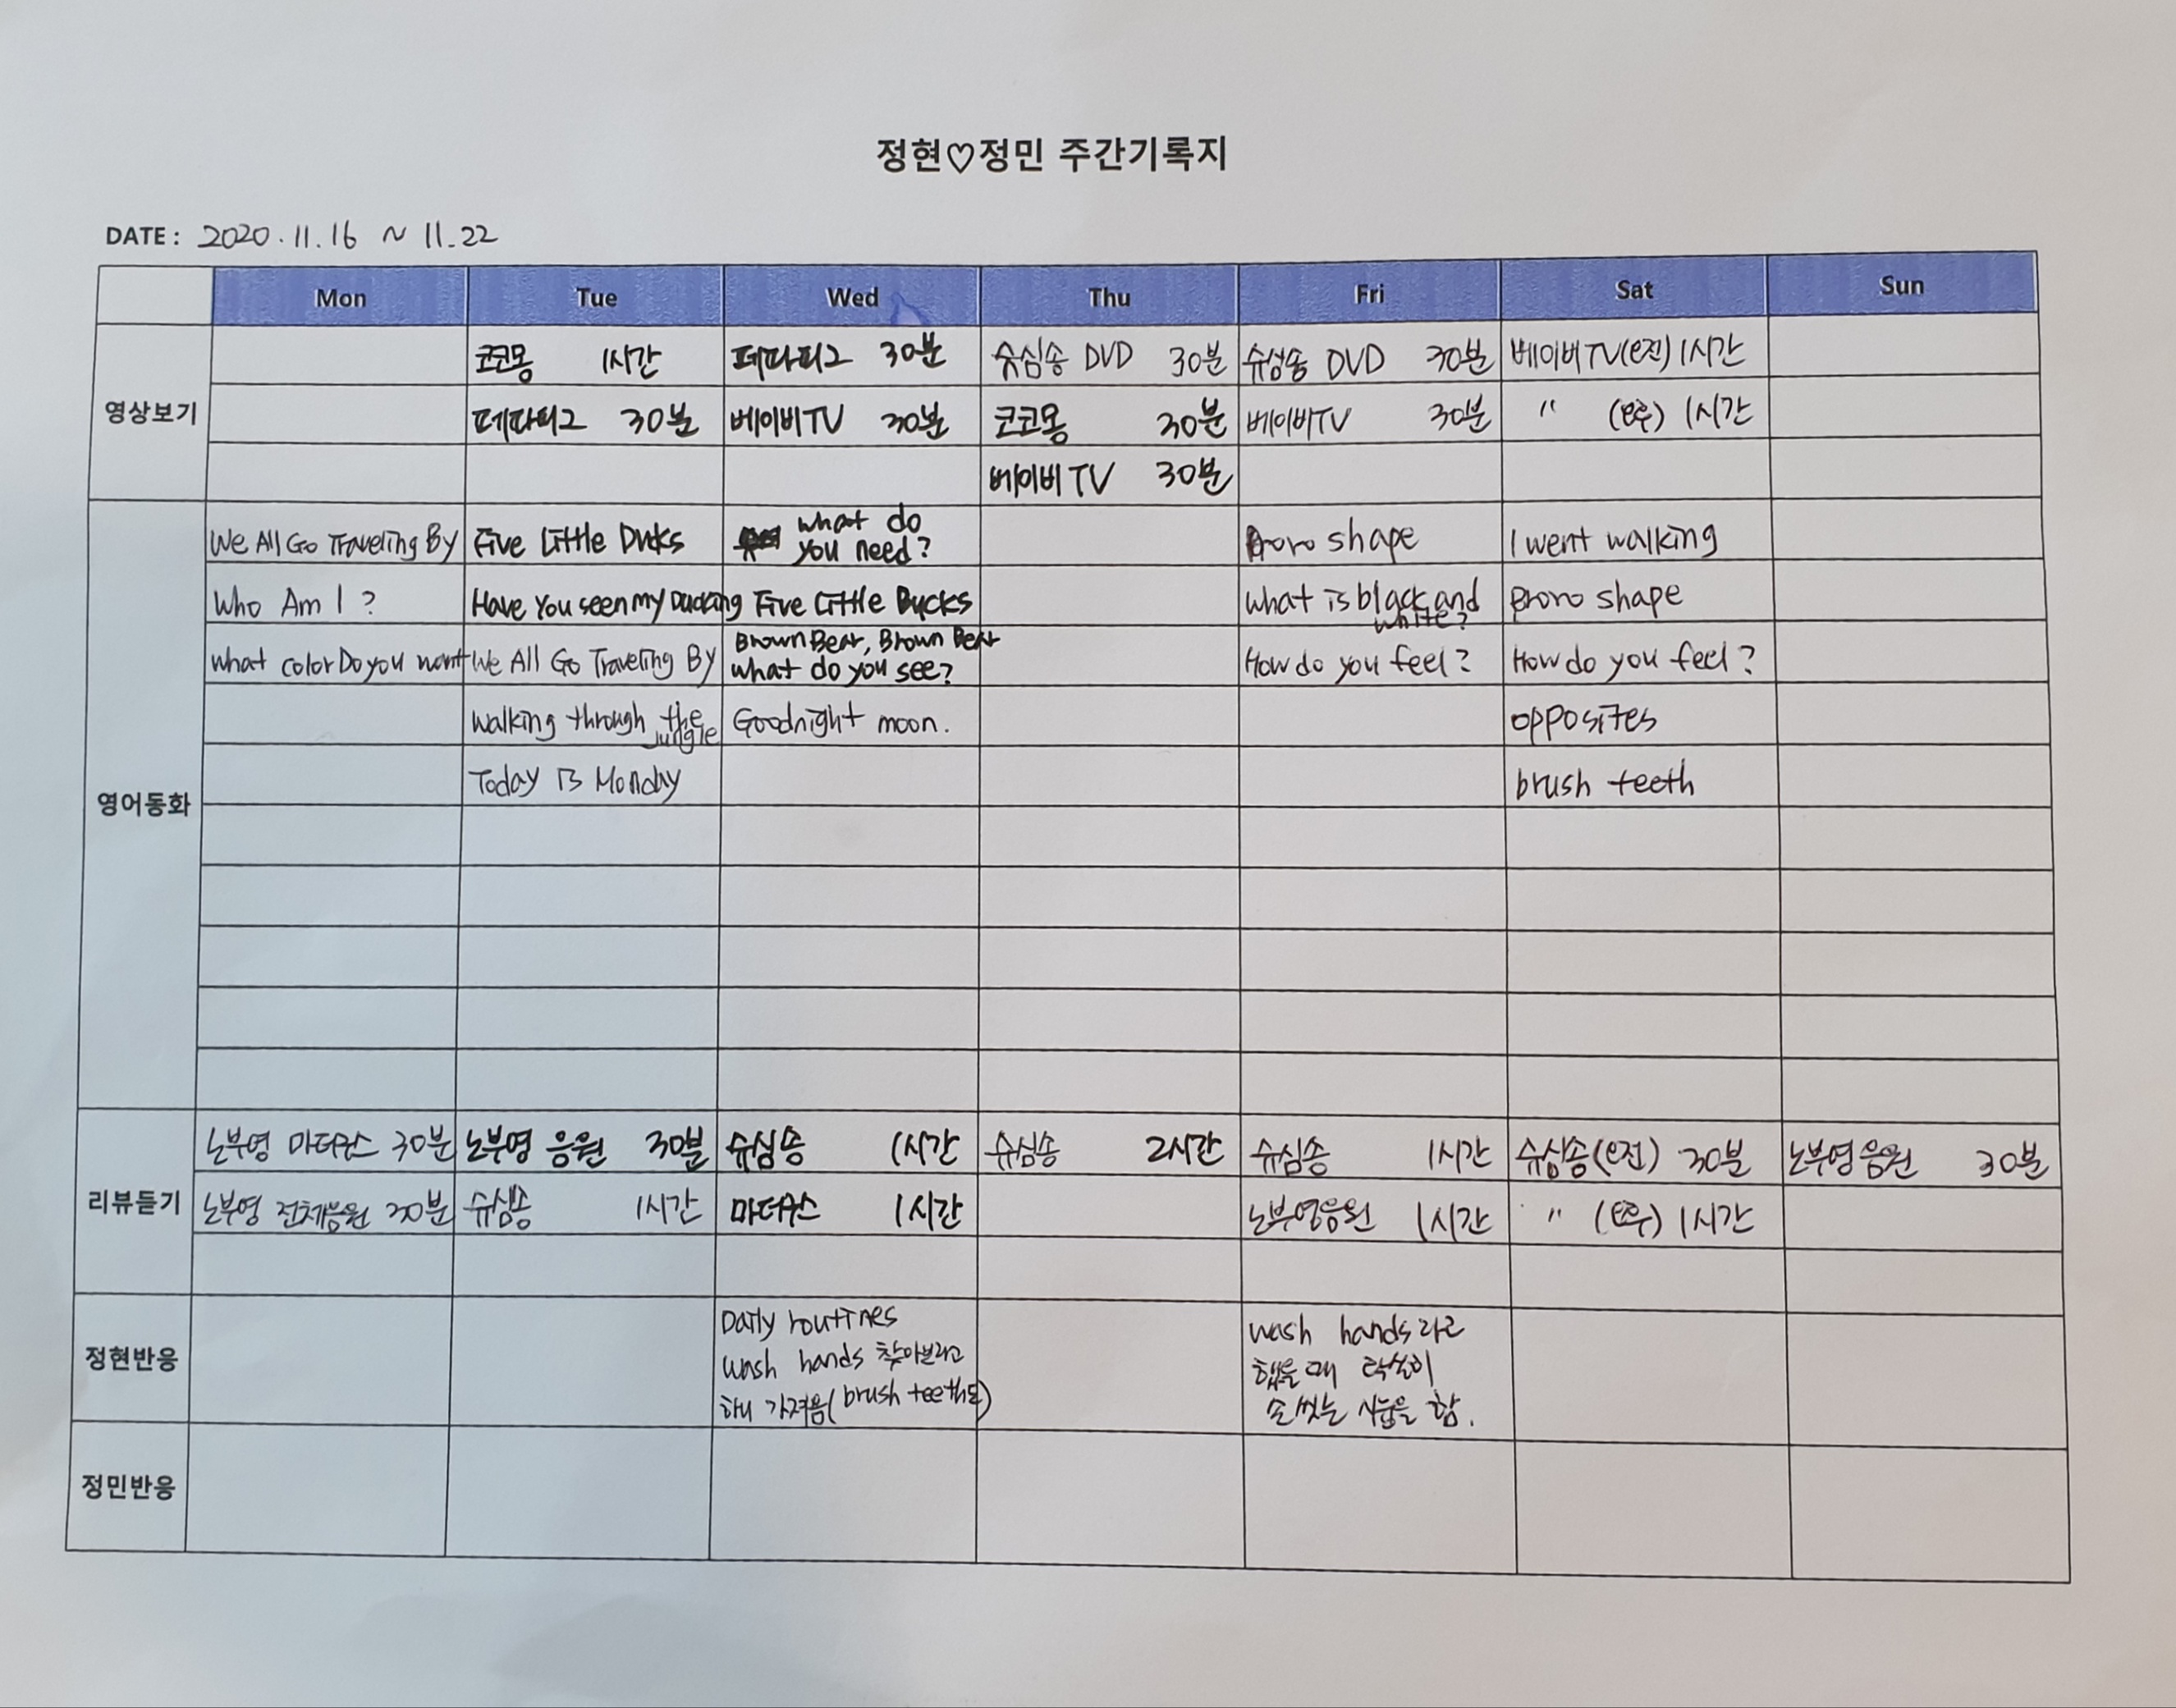 정현♡정민 주간기록지
DATE : 2020.11.16 ~ 11.22
Mon Tue Wed Thu Fri Sat Sun
영상보기
코코몽 1시간 페파피그 30분 슈심송 DVD 30분 슈심송 DVD 30분 베이비TV(오전) 1시간
페파피그 30분 베이비TV 30분 코코몽 30분 베이비TV 30분 〃 (오후) 1시간
베이비TV 30분
영어동화
We All Go Traveling By Five Little Ducks what do you need? Bioro shape I went walking
Who Am I ? Have You seen my Duckling Five Little Ducks what is black and white? shape
what color Do you want We All Go Traveling By Brown Bear, Brown Bear what do you see? How do you feel? How do you feel?
walking through the jungle Goodnight moon. opposites
Today is Monday brush teeth
리뷰듣기
노부영 마더구스 30분 노부영 응원 30분 슈심송 1시간 슈심송 2시간 슈심송 1시간 슈심송(오전) 30분 노부영응원 30분
노부영 전체응원 30분 슈심송 1시간 마더구스 1시간 노부영응원 1시간 〃 (오후) 1시간
정현반응
Daily routines
wash hands 찾아보라고
하니 가져옴(brush teeth도)
wash hands라고
했을 때 확실히
손 씻는 시늉을 함.
정민반응